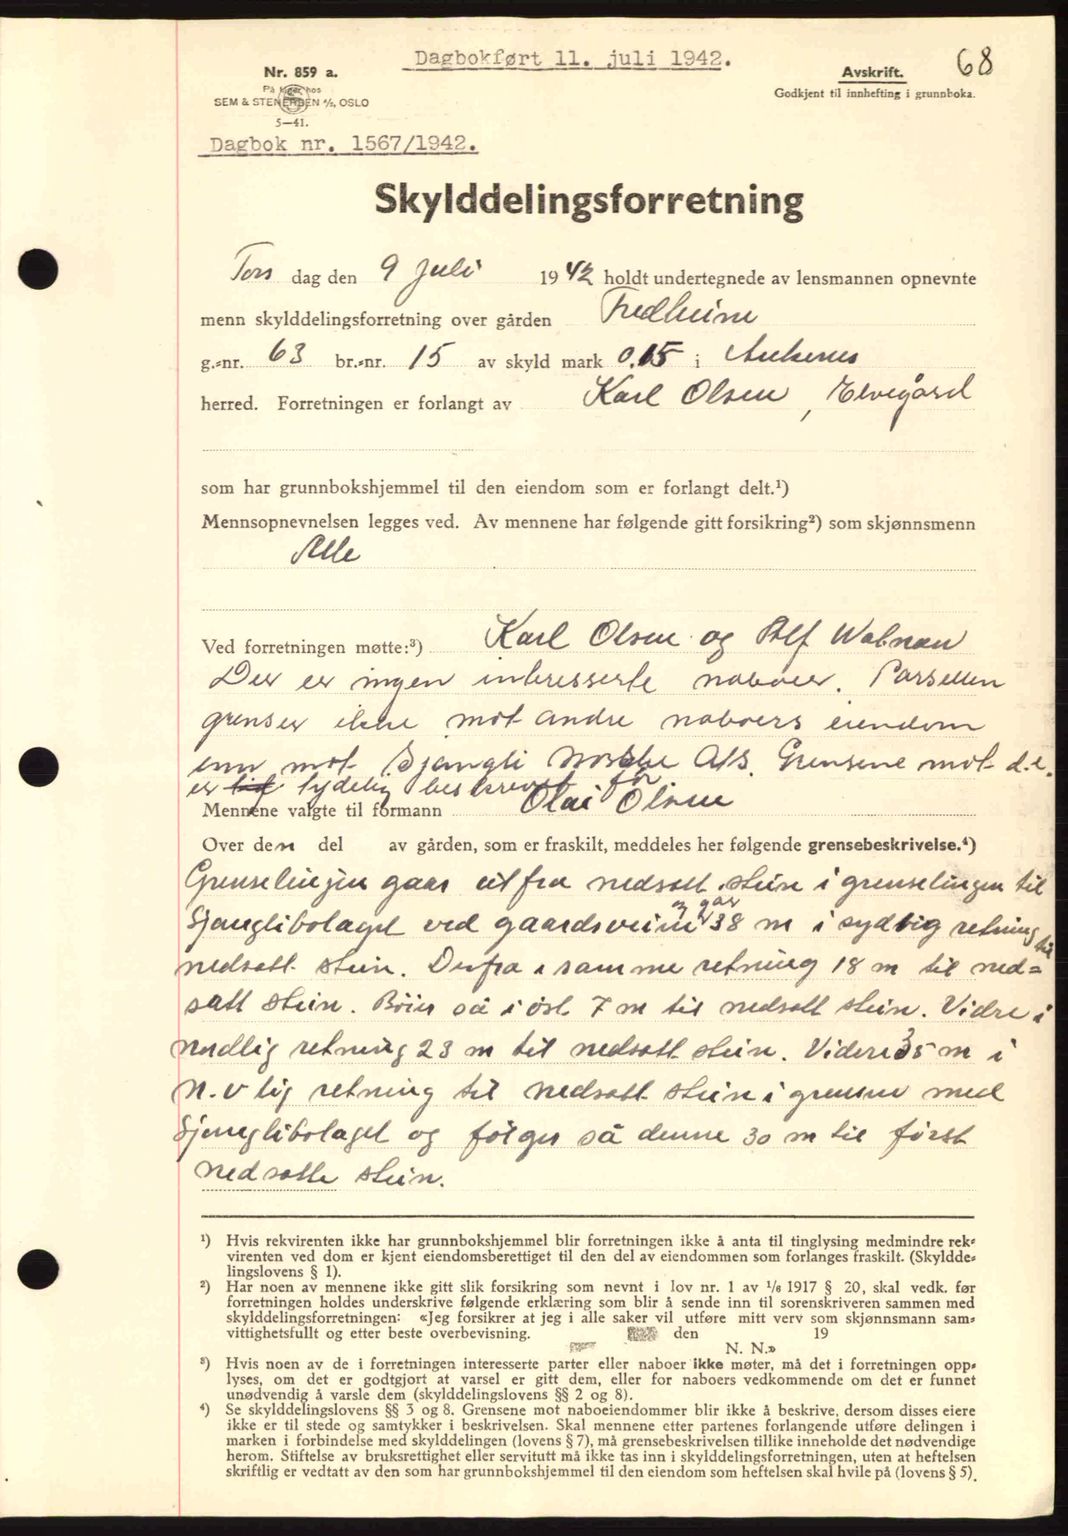 Dagbokført 11. juli 1942.
68
Nr. 859 a.
På lager hos
SEM & STENERSEN A/S, OSLO
5—41.
Avskrift.
Godkjent til innhefting i grunnboka.
Dagbok nr. 1567/1942.
Skylddelingsforretning
Tors dag den 9 juli 1942 holdt undertegnede av lensmannen opnevnte
menn skylddelingsforretning over gården Fredheim
g.-nr. 63 br.-nr. 15 av skyld mark 0.15 i Ankenes
herred. Forretningen er forlangt av Karl Olsen, Elvegård
som har grunnbokshjemmel til den eiendom som er forlangt delt.¹)
Mennsopnevnelsen legges ved. Av mennene har følgende gitt forsikring²) som skjønnsmenn
Alle
Ved forretningen møtte:³) Karl Olsen og Alf
Der er ingen interesserte naboer. Parsellen
grenser ikke mot andre naboers eiendom
enn mot Sjangli Norske A/S. Grensene mot d.e.
er tydelig beskrevet før
Mennene valgte til formann Olai Olsen
Over den del av gården, som er fraskilt, meddeles her følgende grensebeskrivelse.⁴)
Grenselinjen gaar ut fra nedsatt stein i grenselinjen til
Sjanglibolaget ved gaardsveien og gar 38 m i sydlig retning til
nedsatt stein. Derfra i samme retning 18 m til ned=
satt stein. Böier så i öst 7 m til nedsatt stein. Vidre i
nordlig retning 23 m til nedsatt stein. Videre 35 m i
N.V lig retning til nedsatt stein i grensen med
Sjanglibolaget og følger så denne 30 m til först
nedsatte stein.
¹) Hvis rekvirenten ikke har grunnbokshjemmel blir forretningen ikke å anta til tinglysing medmindre rek-
virenten ved dom er kjent eiendomsberettiget til den del av eiendommen som forlanges fraskilt. (Skyldde-
lingslovens § 1).
²) Har noen av mennene ikke gitt slik forsikring som nevnt i lov nr. 1 av 1/6 1917 § 20, skal vedk. før
forretningen holdes underskrive følgende erklæring som blir å sende inn til sorenskriveren sammen med
skylddelingsforretningen: «Jeg forsikrer at jeg i alle saker vil utføre mitt verv som skjønnsmann sam-
vittighetsfullt og etter beste overbevisning. den 19
N. N.»
³) Hvis noen av de i forretningen interesserte parter eller naboer ikke møter, må det i forretningen opp-
lyses, om det er godtgjort at varsel er gitt dem, eller for naboers vedkommende om det er funnet
unødvendig å varsle dem (skylddelingslovens §§ 2 og 8).
⁴) Se skylddelingslovens §§ 3 og 8. Grensene mot naboeiendommer blir ikke å beskrive, dersom disses eiere
ikke er til stede og samtykker i beskrivelsen. Skal mennene etter partenes forlangende utføre delingen i
marken i forbindelse med skylddelingen (lovens § 7), må grensebeskrivelsen tillike inneholde det nødvendige
herom. Stiftelse av bruksrettighet eller servitutt må ikke tas inn i skylddelingsforretningen, uten at heftelsen
skriftlig er vedtatt av den som har grunnbokshjemmel til den eiendom som heftelsen skal hvile på (lovens § 5).